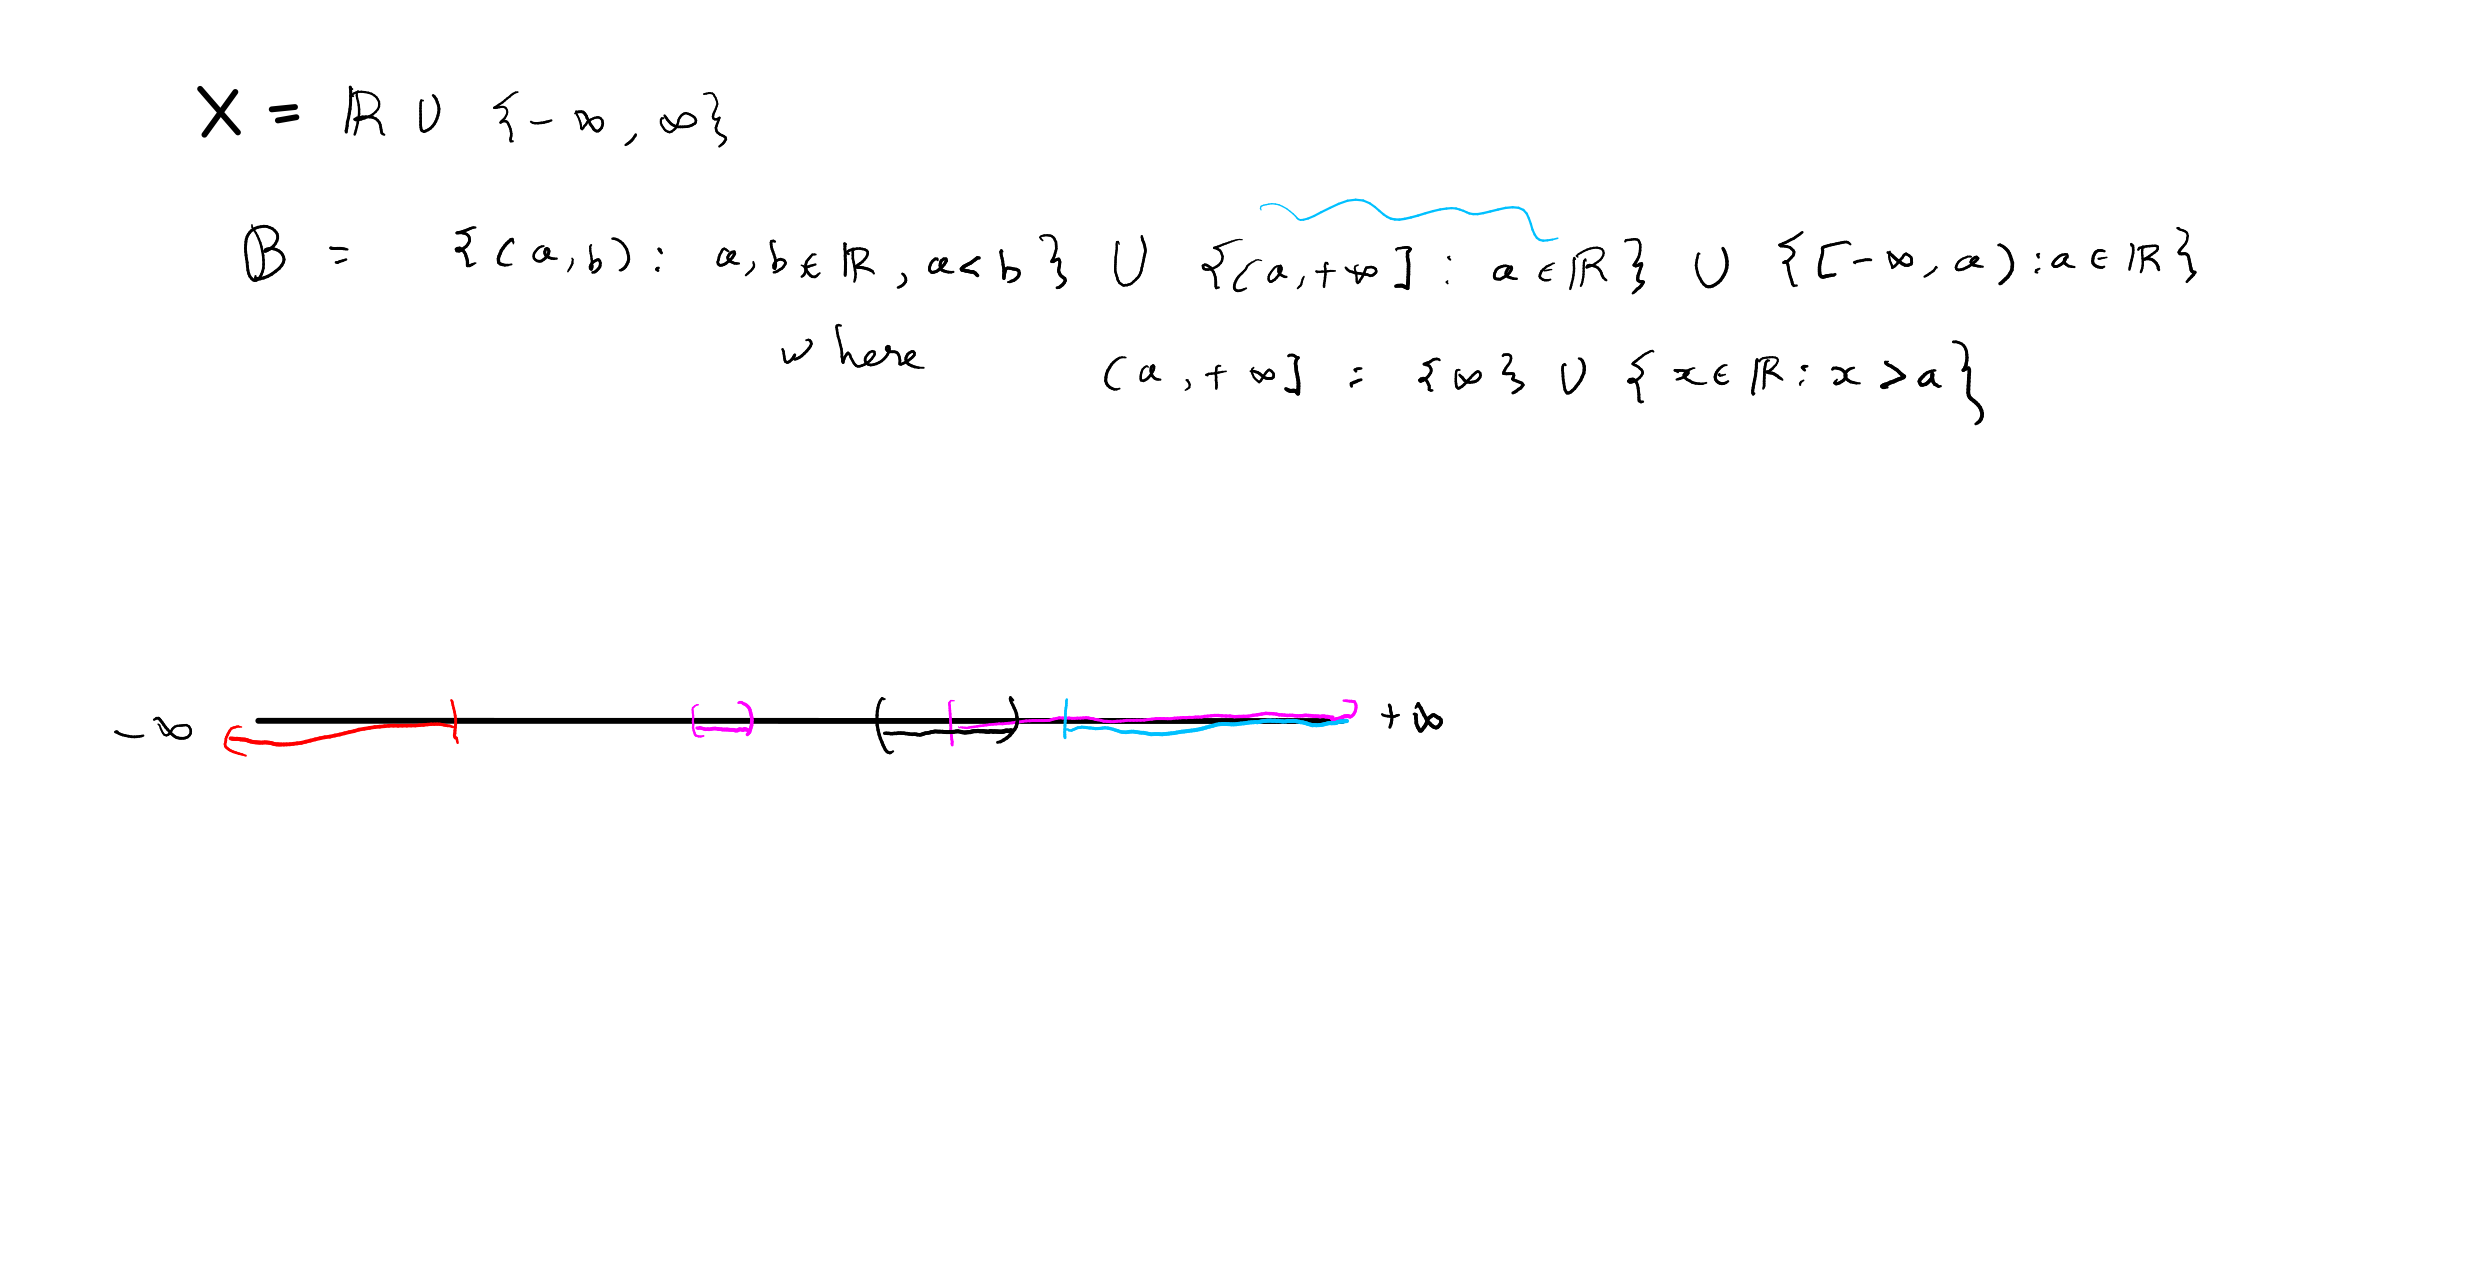 X = ℝ ∪ {-∞, ∞}
𝔹 = {(a,b): a,b∈ℝ, a<b} ∪ {(a,+∞]: a∈ℝ} ∪ {[-∞,a): a∈ℝ}
where (a,+∞] = {∞} ∪ {x∈ℝ: x>a}
-∞ +∞